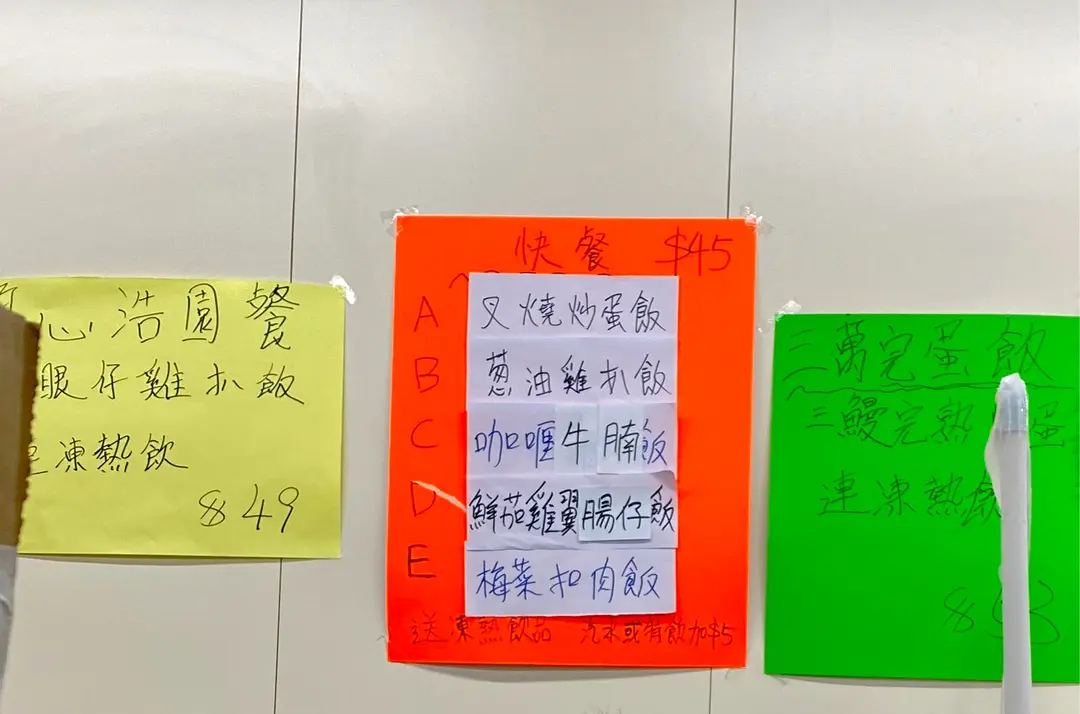 心浩園餐
眼仔雞扒飯
凍熱飲
$49
快餐 $45
A 叉燒炒蛋飯
B 葱油雞扒飯
C 咖喱牛腩飯
D 鮮茄雞翼腸仔飯
E 梅菜扣肉飯
送凍熱飲品 汽水或特飲加$5
三萬完蛋飯
三鰻完熟蛋
連凍熱飲
$58